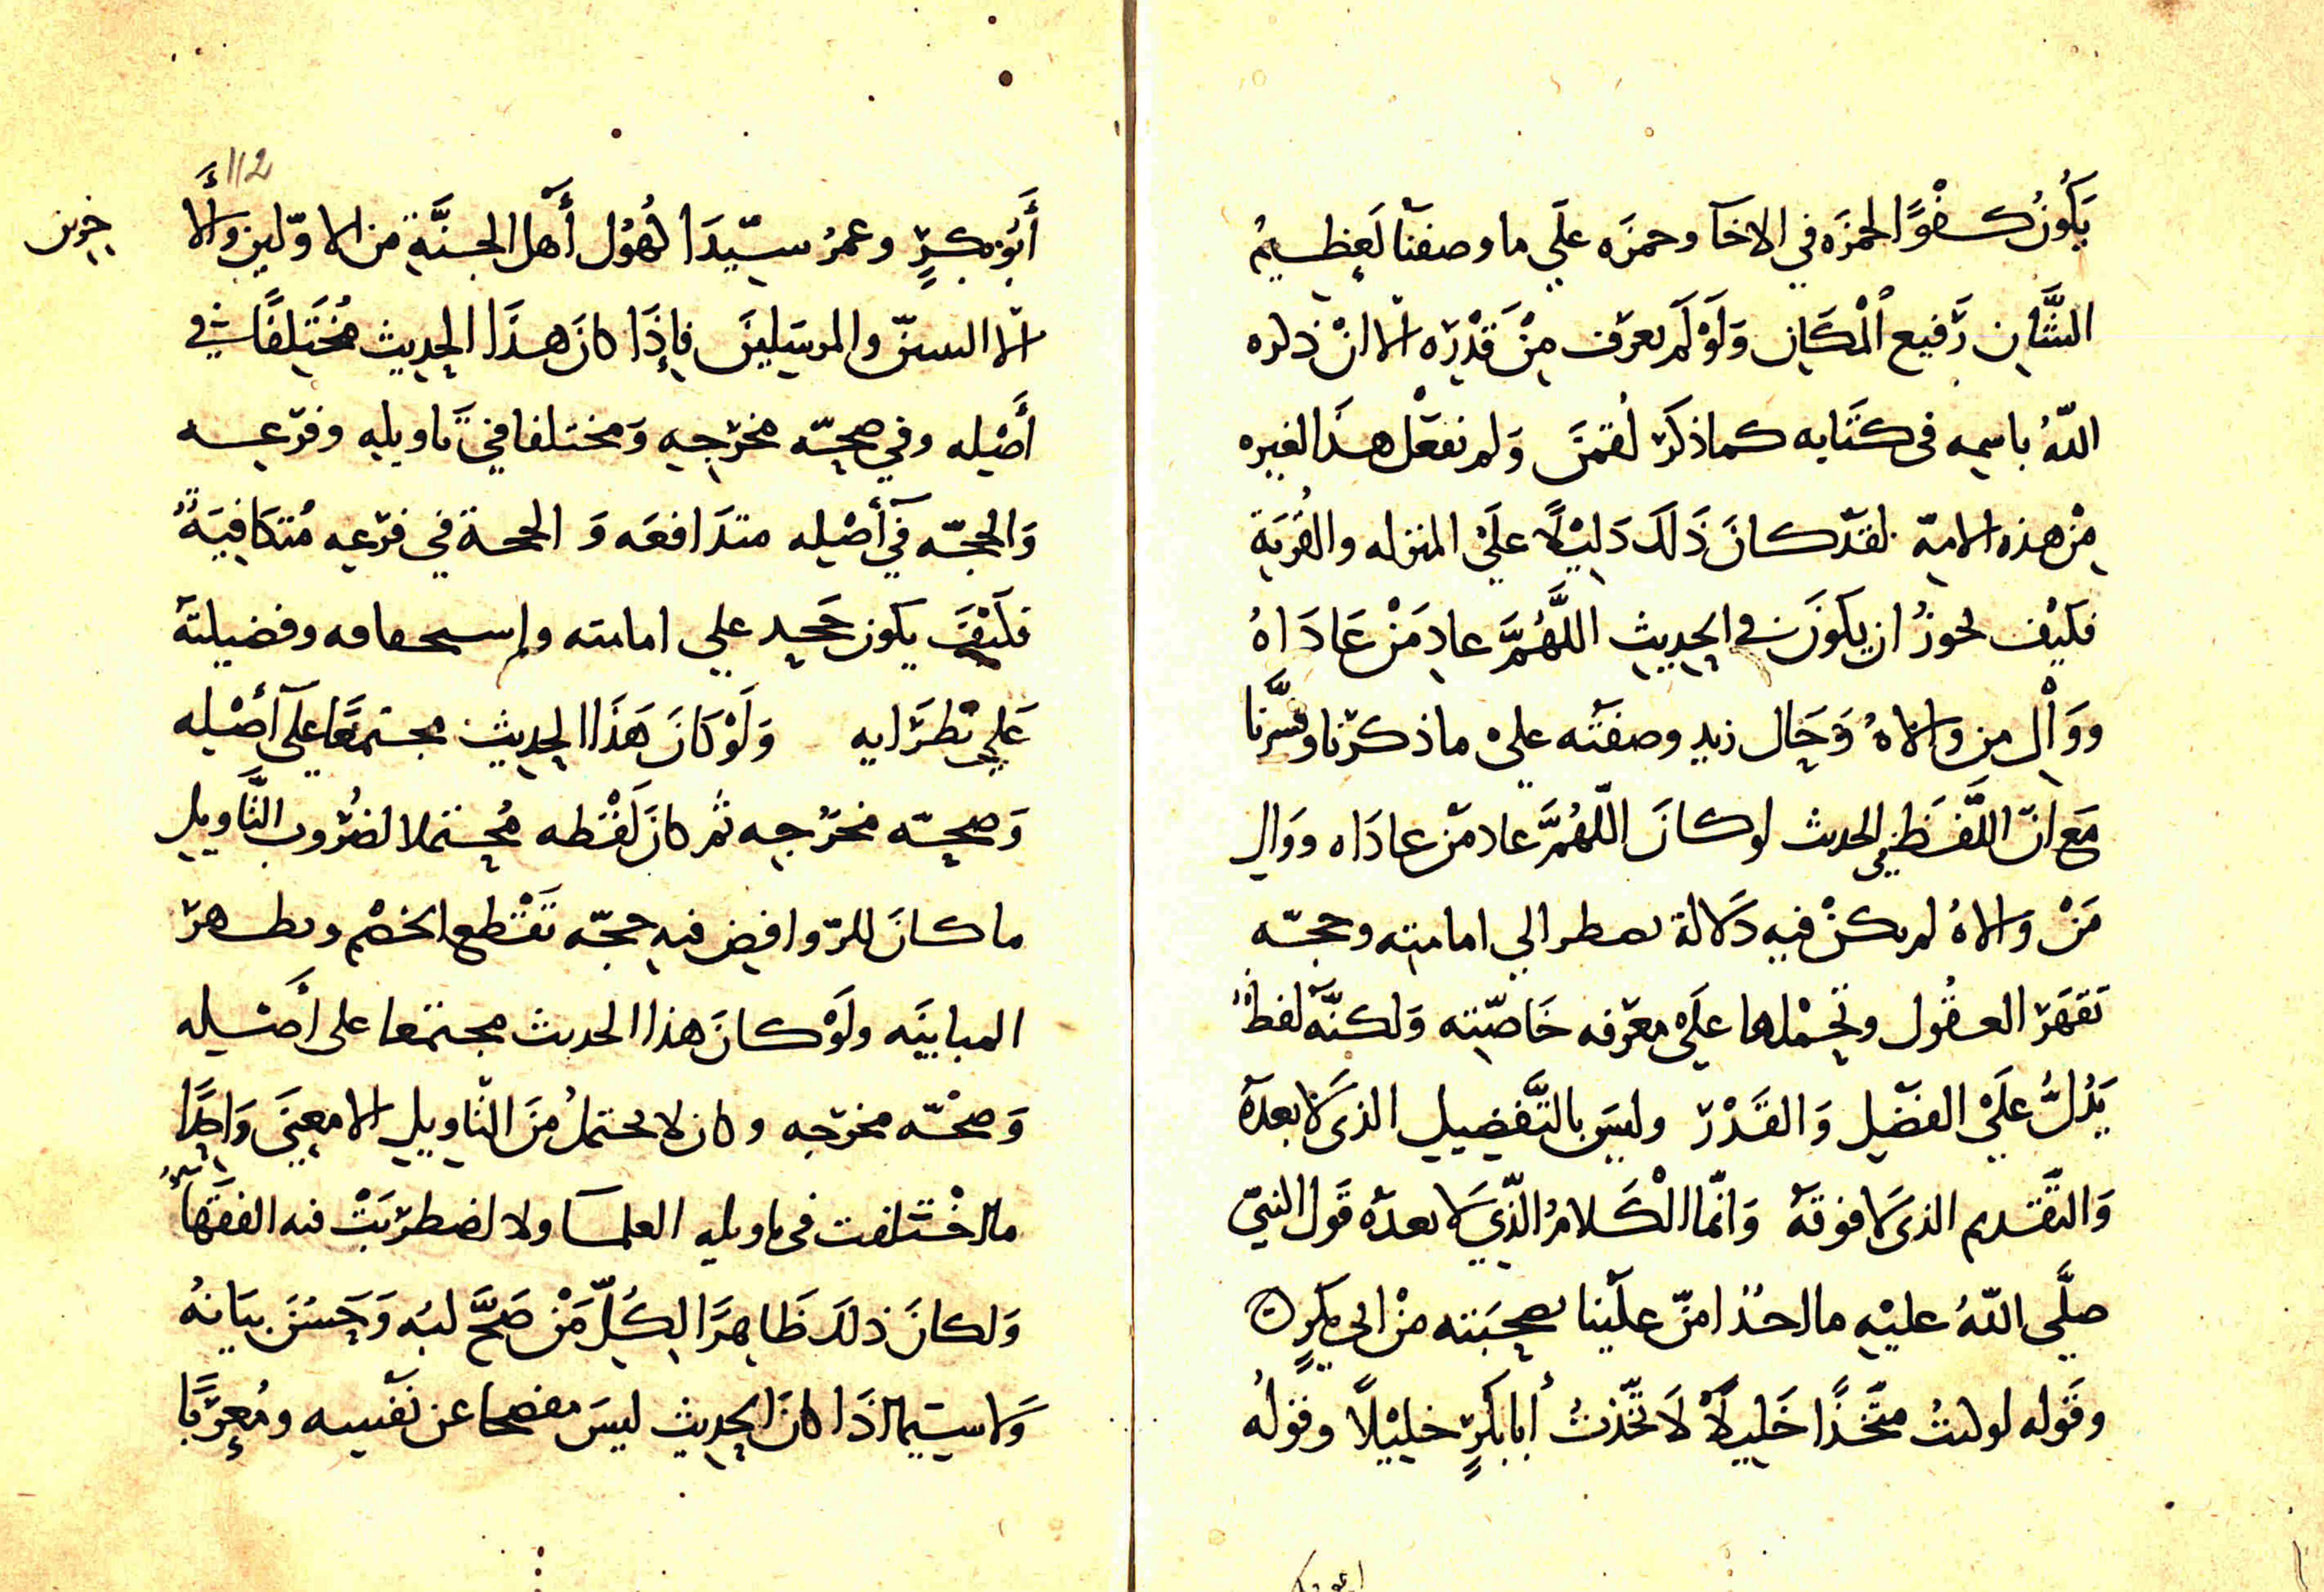 يَكُونُ كفوًا لحمزَه في الاخآ وحمزَه علَي ما وصفنَا لَعظيمُ
الشَّان رَفيع اُلْمكَان وَلَوْ لَم يعرَف مِنْ قَدْرِه الّا انْ ذكره
اللّهُ باسمِه في كتَابه كما ذكَر لُقمَنَ وَلم نفعَلْ هذَا لغيره
مِنْ هذه الامّة لقَدْ كانَ ذَلكَ دَليْلًا علَيْ المنزله والقُربَة
فكَيْف يجوزُ ان يكوَنَ في الحديث اللَّهُمَّ عادِ مَنْ عَادَاهُ
وَوَاْلِ من والاهُ وَحَال زيد وصفتَه عليْ ما ذكرْنا وفسَّرنا
مَع انّ اللَّفظَ في الحديث لو كانَ اللّهُمَّ عاد مَن عادَاه ووَالِ
مَنْ والاهُ لم يكنْ فيه دَلالة تضطر الي امامته وحجّه
تَقهَر العقُول وتحْملها علَيْ معرفه خَاصّته وَلكنَّه لفظٌ
يَدُلُّ علَيْ الفضْل وَالقَدْر وليسَ بالتَّفضيل الذي لَا بعدَهُ
وَالتَّقدم الذي لَا فوقهُ وَانّما اْلكَلامُ الّذي لَا بعدَه قَول النبيّ
صلَّي اللّهُ عليْه ما احدٌ امنّ علَيْنا بصحبَته منْ ابي بكرٍ ه
وقَوله لو كنتُ متَّخذًا خَليلًا لَاتّخذتُ أبا بَكرٍ خليْلًا وقولُه
ابو بكر
112
أَبُو بكرٍ وعمرُ سيّدَا كهُوْل أَهْل الجنَّة من الاوّلين وَالأَ
خرين
الّا النبيّن والمرسَلينَ فإِذَا كانَ هذَا الحديث مُختَلفًا في
أَصْله وفي صحّه مخرَجه وَمختلفا في تَاويله وفرْعه
وَالحجّه في أَصْله متدَافعَه وَ الحجة في فرْعه مُتكَافيَةٌ
فكَيْفَ يكون حجه علي امامته وإستحقاقه وفضيلته
عَلي نُظرَايه وَلَوْ كَانَ هَذَا الحديث مجتمعًا علَي أَصْله
وَصحّه مخرَجه ثم كانَ لَفْظه مُحتملا لضُرُوب التَّاويل
ما كانَ للرّوافض فيه حجّه تَقْطع الخصْم وتظهر
المبايَنَه ولَوْ كانَ هذا الحديث مجتمعا على أَصْله
وَصحّه مخرجه وكان لا يحتملُ مِنَ التّاويل الا معنيَ وَاحدًا
ما اخْتلفت في تاويله العلمآ ولا اضطرَبَتْ فيه الفقهآ
وَلكانَ ذلكَ ظَاهرًا لكُلّ مَنْ صَحَّ لبُه وَحَسُنَ بيَانهُ
وَلا سيّما اذَا كانَ الحديث ليسَ مفصحا عن نَفْسه ومُعربًا